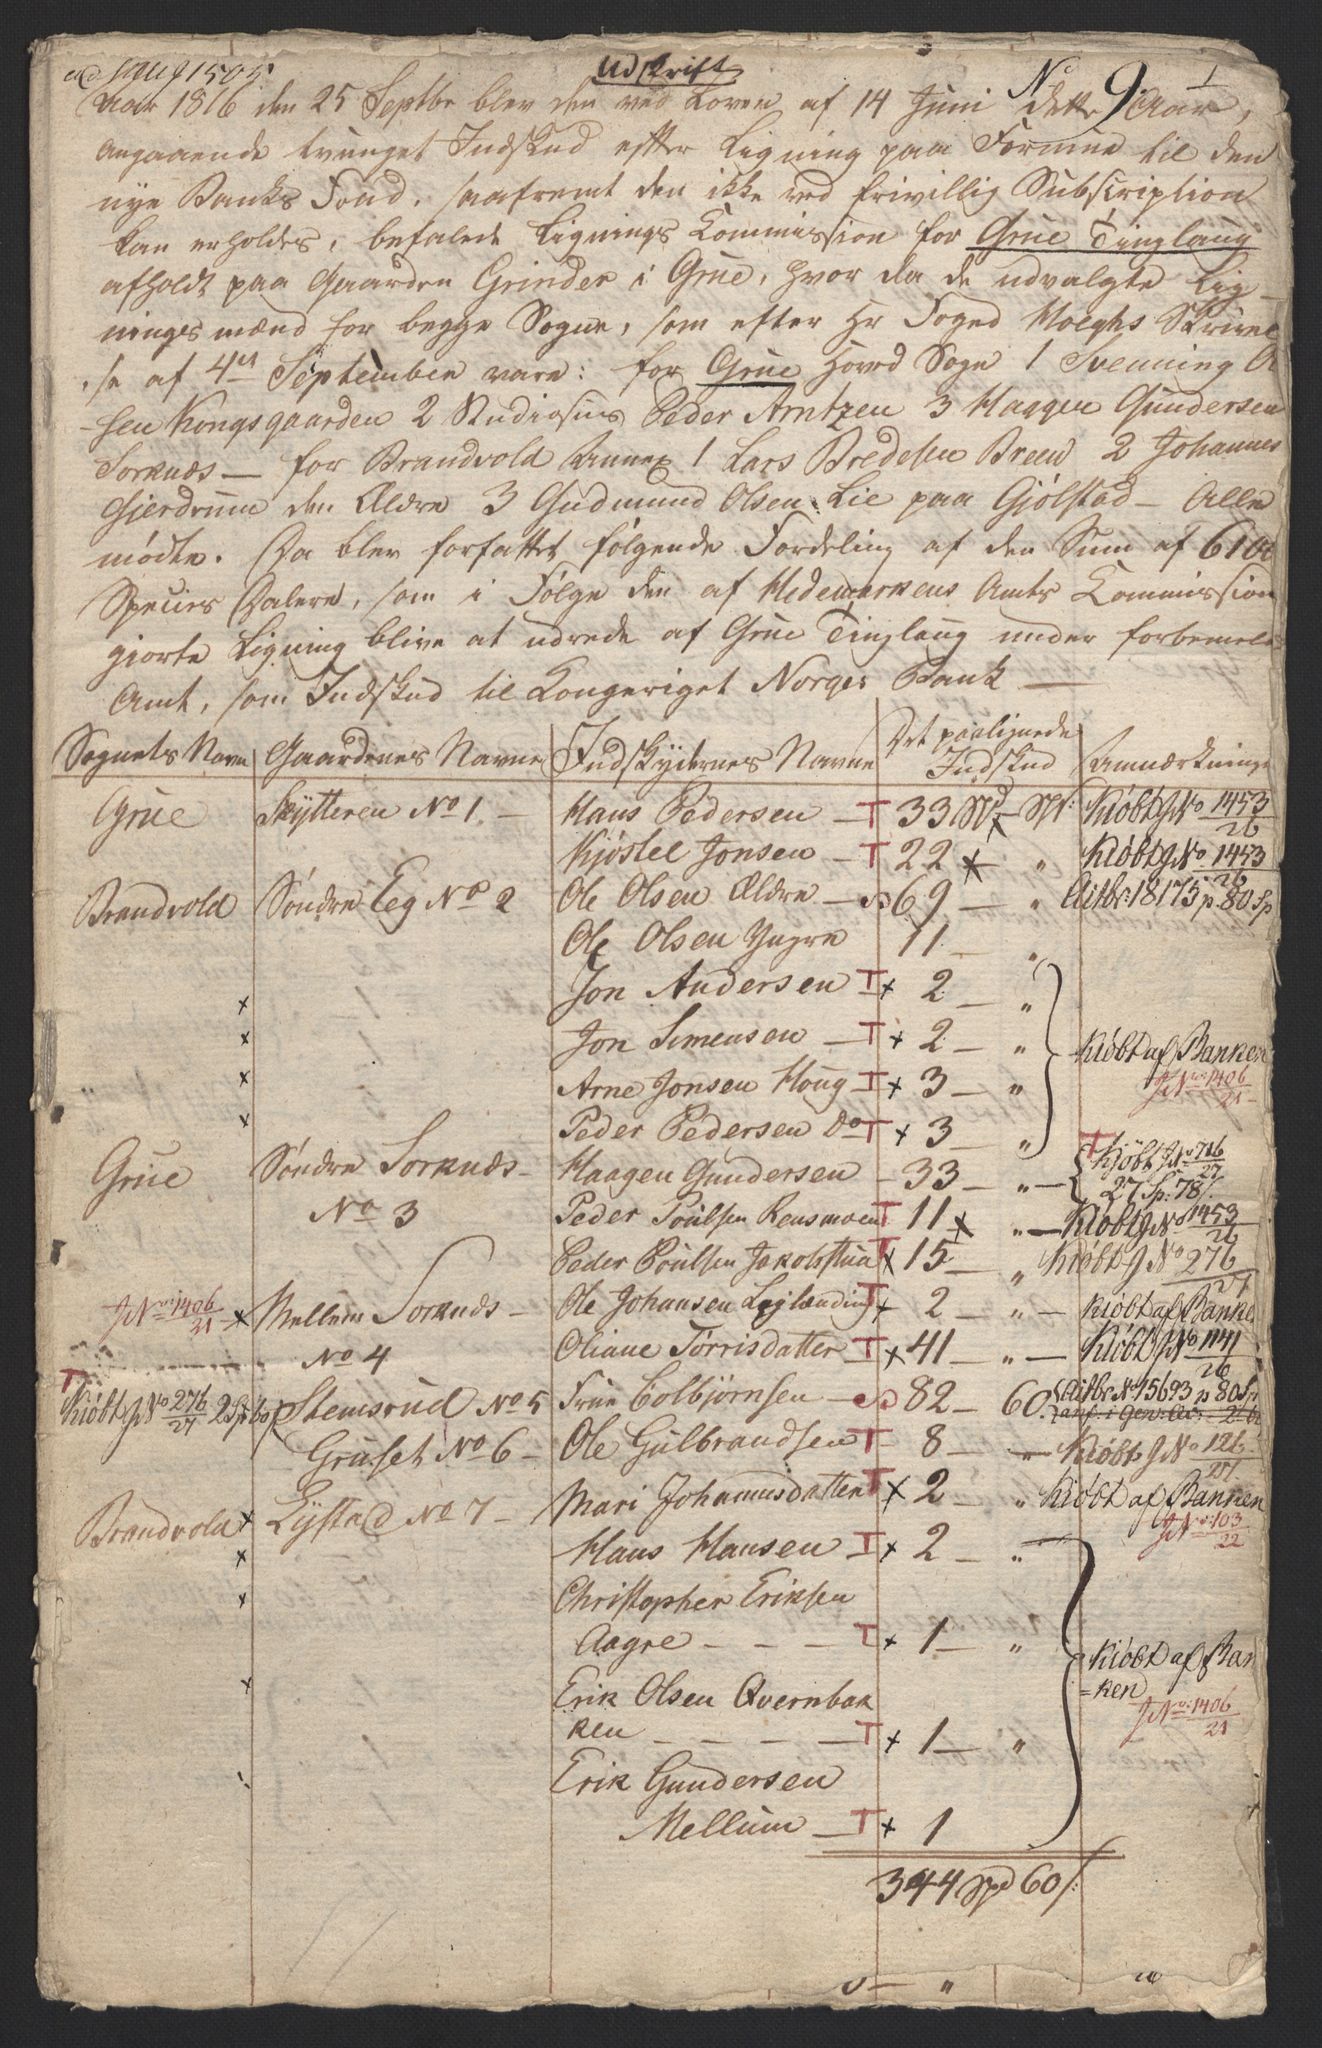 Udskrift
No 9 1
Aar 1816 den 25 Septbr blev den ved Loven af 14 Juni dette Aar,
angaaende tvunget Indskud efter Ligning paa Formue til den
nye Banks Fond, saafremt den ikke ved frivillig Subscription
kan erholdes, befalede Lignings Commission for Grue Tinglaug
afholdt paa Gaarden Grinder i Grue, hvor da de udvalgte Lig-
ningsmænd for begge Sogne, som efter Hr Foged Moeghs Skrivel
se af 4de September vare: for Grue Hoved Sogn 1 Svenning O
lsen Kongsgaarden 2 Studiosus Peder Arntzen 3 Haagen Gundersen
Sorknæs — for Brandvold Annex 1 Lars Bredesen Breen 2 Johannes
Gjerdrum den Ældre 3 Gudmund Olsen Lie paa Gjølstad — Alle
mødte. Da blev forfattet følgende Fordeling af den Sum af
Species Dalere, som i Følge den af Hedemarkens Amts Commission
gjorte Ligning blive at udrede af Grue Tinglaug under forbemeld
Amt, som Indskud til Kongeriget Norges Bank —
Sognets Navn Gaardenes Navne Indskydernes Navne Det paalignede Indskud Anmærkninge
Grue Skytteren No 1. — Hans Pedersen — T 33 Spd — Kiøbt J No 1453/26
Kjøstel Jonsen — T 22 x — " Kiøbt J No 1453/26
Brandvold Søndre Eeg No 2 Ole Olsen Ældre — 69 — " Actbr: 18175 p. 80 Sp
Ole Olsen Yngre 11 — "
x Jon Andersen T x 2 — "
x Jon Simensen — T x 2 — " Kiøbt af Banken
x Arne Jonsen Houg T x 3 — " J No: 1406/21
x Peder Pedersen Do T x 3 — "
Grue Søndre Sorknæs — Haagen Gundersen — 33 — " — T Kjöbt J No 716/27
27 Sp: 78 s.
No 3 Peder Poulsen Rensmoen T 11 x " — Kiøbt J No 1453/26
Peder Poulsen Jakobstua T x 15 — " Kiøbt J No 276/27
J No: 1406/21 x Mellem Sorknæs — Ole Johansen Løglænding x 2 — " — Kiøbt af Banke
No 4 Oliane Törrisdatter T x 41 — " — Kiøbt J No 1141/26
T Kiöbt J No 276/27 2 Sp 60 s Stemsrud No 5 Frue Colbjørnsen — 82 — 60. Actbr No 15693 p 80 Sp
Gruset No 6 — Ole Gulbrandsen T — 8 — " — Kiøbt J No 126/27.
Brandvold x Lystad No 7 — Mari Johannisdatter T x 2 — " Kiøbt af Banken
J No: 103/22
x Hans Hansen — T x 2 — "
x Christopher Eriksen
Aagre — — — T x 1 — "
Kiøbt af Ban
=ken
x Erik Olsen Qvernbak
ken — — — — T x 1 — " J No: 1406/21
Erik Gundersen
Mellum — T x 1
344 Spd 60 s: